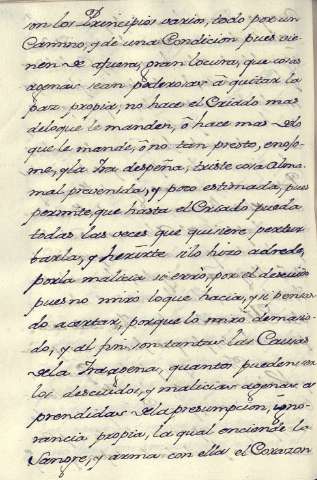 son los Principios varios, todo por un
Camino, y de una Condicion pues vie-
nen de afuera, gran locura, que cosas
agenas sean poderosas á quitar la
paz propia, no hace el Criado mas
delo que le manden, ó hace mas delo
que le mande, ó no tan presto, enojo-
me, y la Ira despeña, triste cosa Alma
mal prevenida, y poco estimada, pues
permite, que hasta el Criado pueda
todas las veces que quisiere pertur
barla, y herirte si lo hizo adrede,
por la malicia si erró, por el descuido
pues no miro lo que hacia, y si pensan
do acertar, porque lo miró demasia-
do, y al fin son tantas las Causas
dela Ira agena, quantos pueden ser
los descuidos, y malicias agenas a
prendidas dela presumpcion, é igno-
rancia propia, la qual enciende la
Sangre, y arma con ella el Corazon